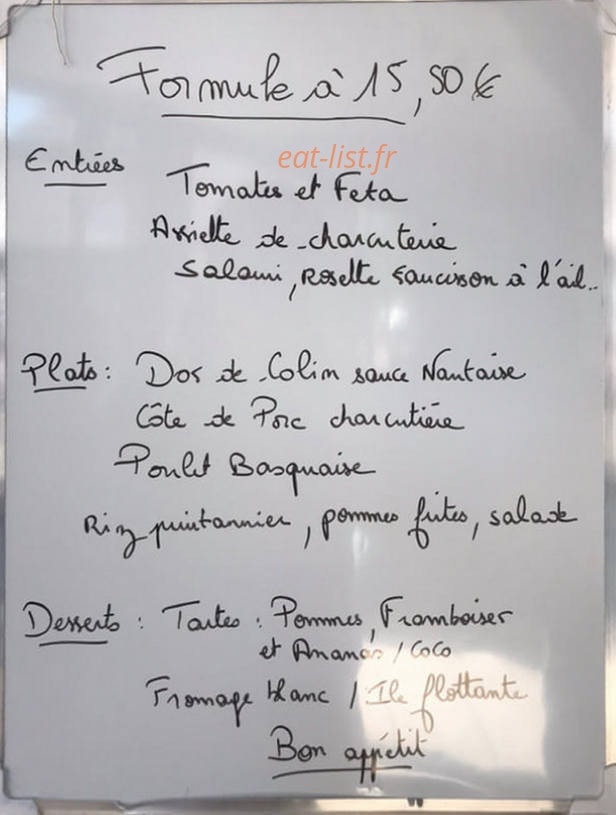 Formule à 15,50€
eat-list.fr
Entrées
Tomates et Feta
Assiette de charcuterie
Salami, Rosette saucisson à l'ail..
Plats : Dos de Colin sauce Nantaise
Côte de Porc charcutière
Poulet Basquaise
Riz printannier, pommes frites, salade
Desserts : Tartes : Pommes, Framboises
et Ananas / Coco
Fromage blanc / Ile flottante
Bon appétit